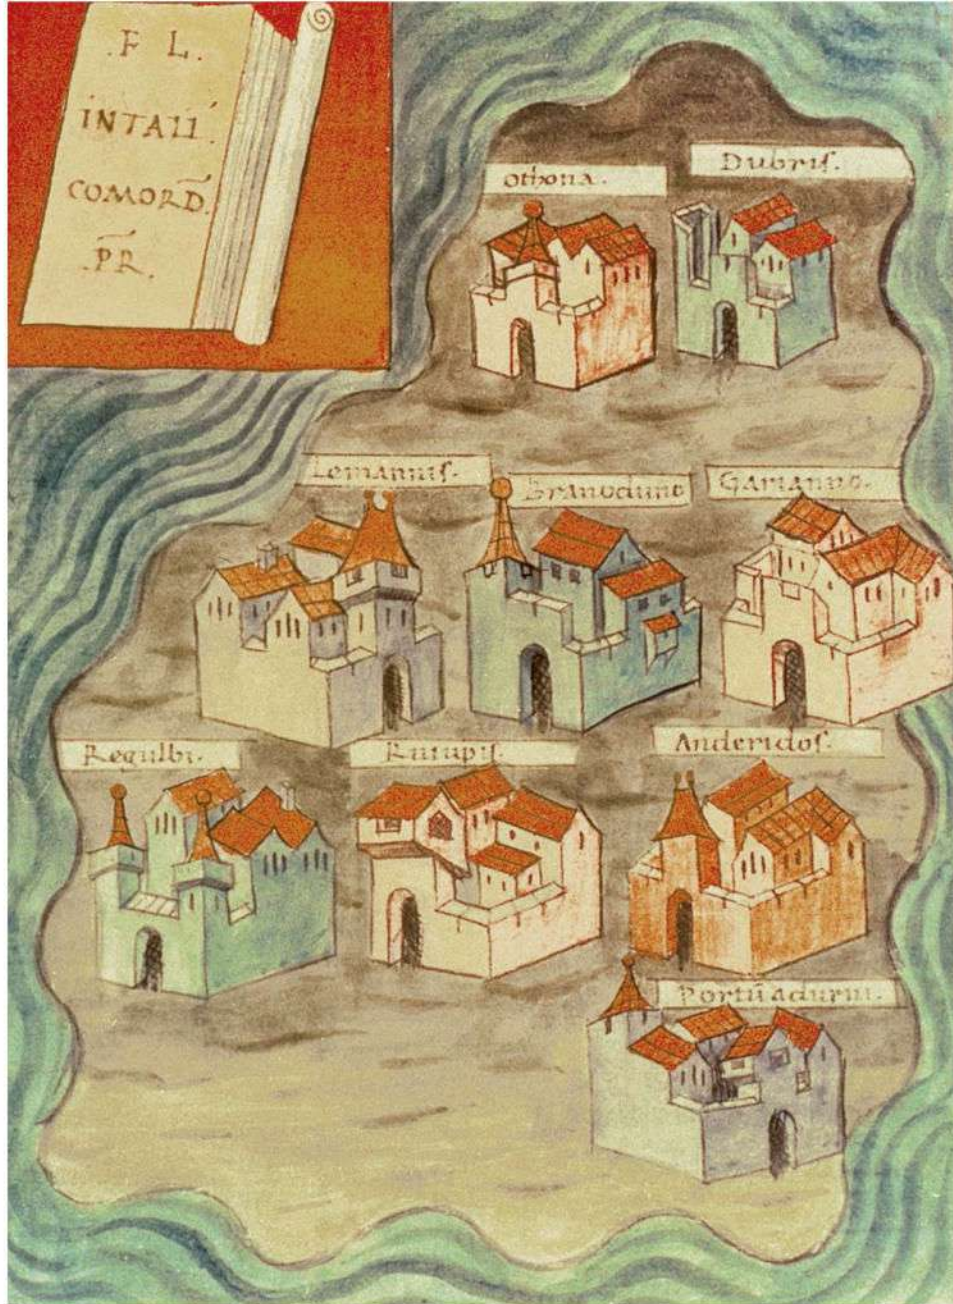 .F L.
INTALL
COMORD̄.
.P̄R.
Othona.
Dubris.
Lemannis.
Branoduno
Garianno.
Regulbi.
Rutupis.
Anderidos.
Portū adurni.